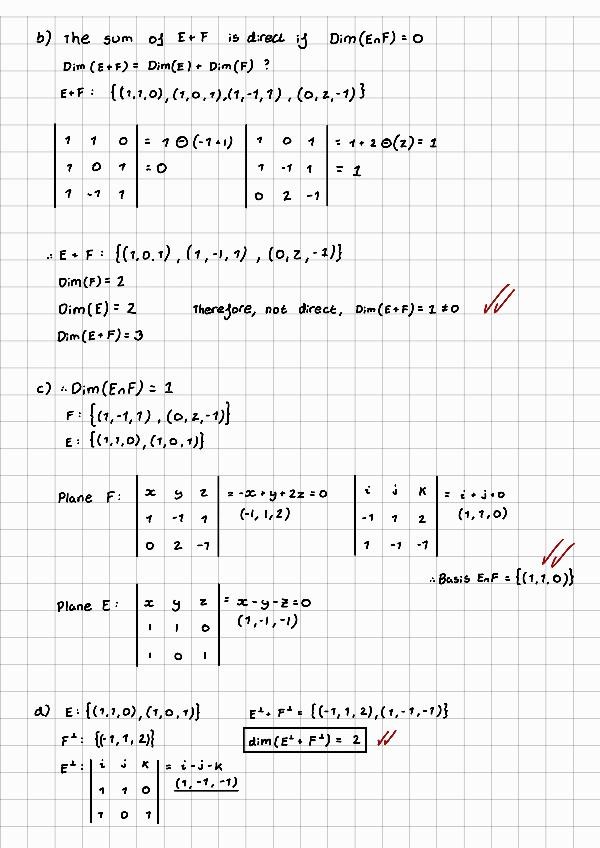 b) The sum of E+F is direct if Dim(E∩F) = 0
Dim (E+F) = Dim(E) + Dim(F) ?
E+F : {(1,1,0),(1,0,1),(1,-1,1),(0,2,-1)}
1 1 0 = 1 ⊖(-1+1) 1 0 1 = 1+2⊖(2) = 1
1 0 1 = 0 1 -1 1 = 1
1 -1 1 0 2 -1
∴ E + F : {(1,0,1), (1,-1,1), (0,2,-1)}
Dim(F) = 2
Dim(E) = 2 Therefore, not direct, Dim(E+F) = 1 ≠ 0
Dim(E+F) = 3
c) ∴ Dim(E∩F) = 1
F: {(1,-1,1), (0,2,-1)}
E: {(1,1,0),(1,0,1)}
Plane F: x y z = -x+y+2z = 0 i j k = i + j + 0
1 -1 1 (-1,1,2) -1 1 2 (1,1,0)
0 2 -1 1 -1 -1
∴ Basis E∩F = {(1,1,0)}
Plane E: x y z = x-y-z = 0
1 1 0 (1,-1,-1)
1 0 1
d) E: {(1,1,0),(1,0,1)} E⊥ + F⊥ = {(-1,1,2),(1,-1,-1)}
F⊥: {(-1,1,2)} dim(E⊥ + F⊥) = 2
E⊥: i j k = i-j-k
1 1 0 (1,-1,-1)
1 0 1